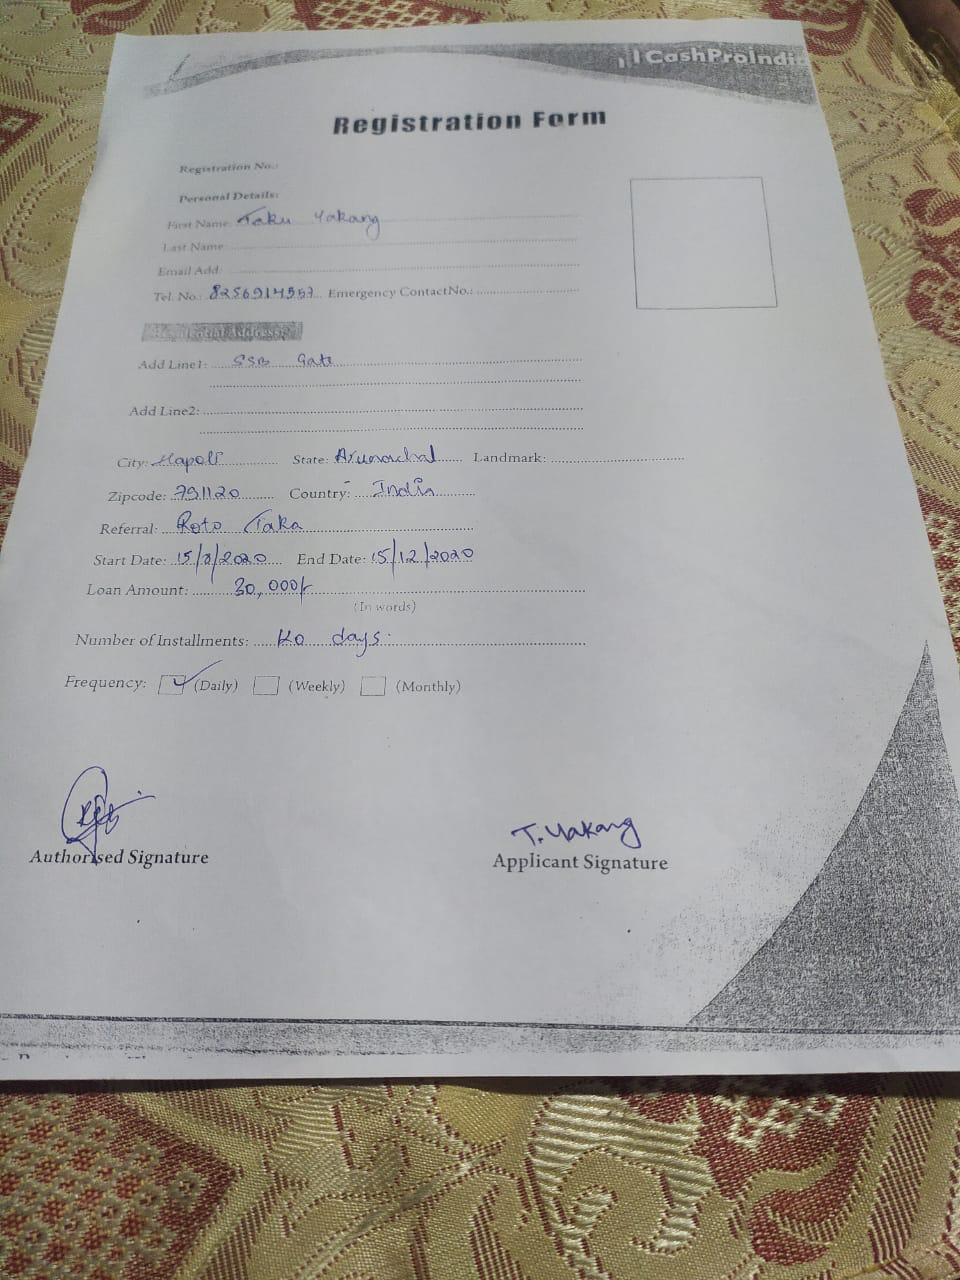 CashProIndia
Registration Form
Registration No.:
Personal Details:
First Name: Taku Yakang
Last Name
Email Add:
Tel. No.: 8256914557 Emergency ContactNo.:
Add Line1: SSB Gate
Add Line2:
City: Hapoli State: Arunachal Landmark:
Zipcode: 791120 Country: India
Referral: Roto Taka
Start Date: 15/8/2020 End Date: 15/12/2020
Loan Amount: 30,000/-
(In words)
Number of Installments: days.
Frequency: (Daily) (Weekly) (Monthly)
Authorised Signature
T. Yakang
Applicant Signature